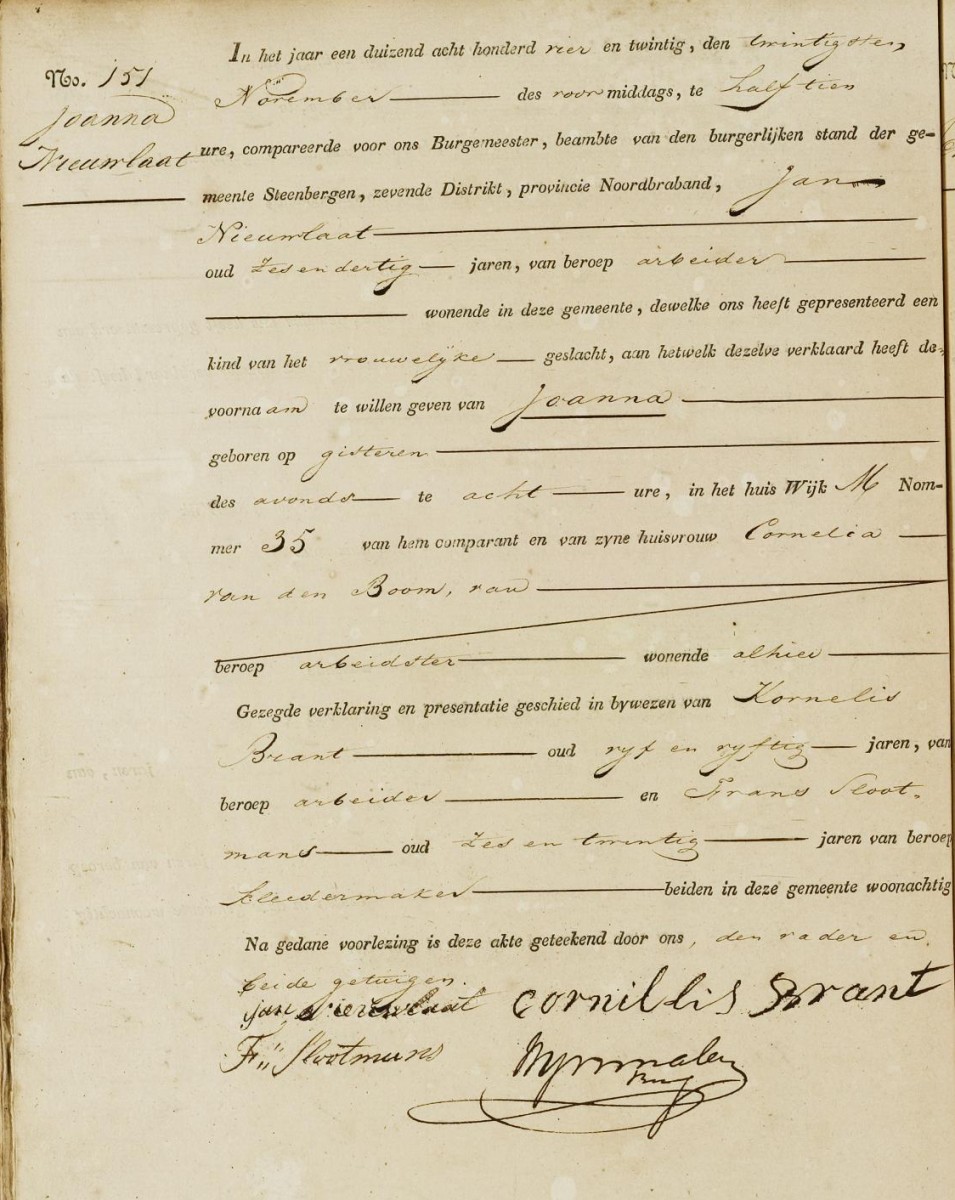 No. 151
Joanna
Nieuwlaat
In het jaar een duizend acht honderd vier en twintig, den twintigsten
November des voormiddags, te half tien
ure, compareerde voor ons Burgemeester, beambte van den burgerlijken stand der ge-
meente Steenbergen, zevende Distrikt, provincie Noordbraband, Jan
Nieuwlaat
oud Zes en dertig jaren, van beroep arbeider
wonende in deze gemeente, dewelke ons heeft gepresenteerd een
kind van het vrouwelijke geslacht, aan hetwelk dezelve verklaard heeft de
voornaam te willen geven van Joanna
geboren op gisteren
des avonds te acht ure, in het huis Wijk M Nom-
mer 35 van hem comparant en van zyne huisvrouw Cornelia
van den Boom, van
beroep arbeidster wonende alhier
Gezegde verklaring en presentatie geschied in bywezen van Kornelis
Brant oud vyf en vyftig jaren, van
beroep arbeider en Frans Sloot-
mans oud Zes en twintig jaren van beroep
kleedermaker beiden in deze gemeente woonachtig
Na gedane voorlezing is deze akte geteekend door ons, den vader en
beide getuigen.
jan nieuwlaat cornillis Brant
F" Slootmans